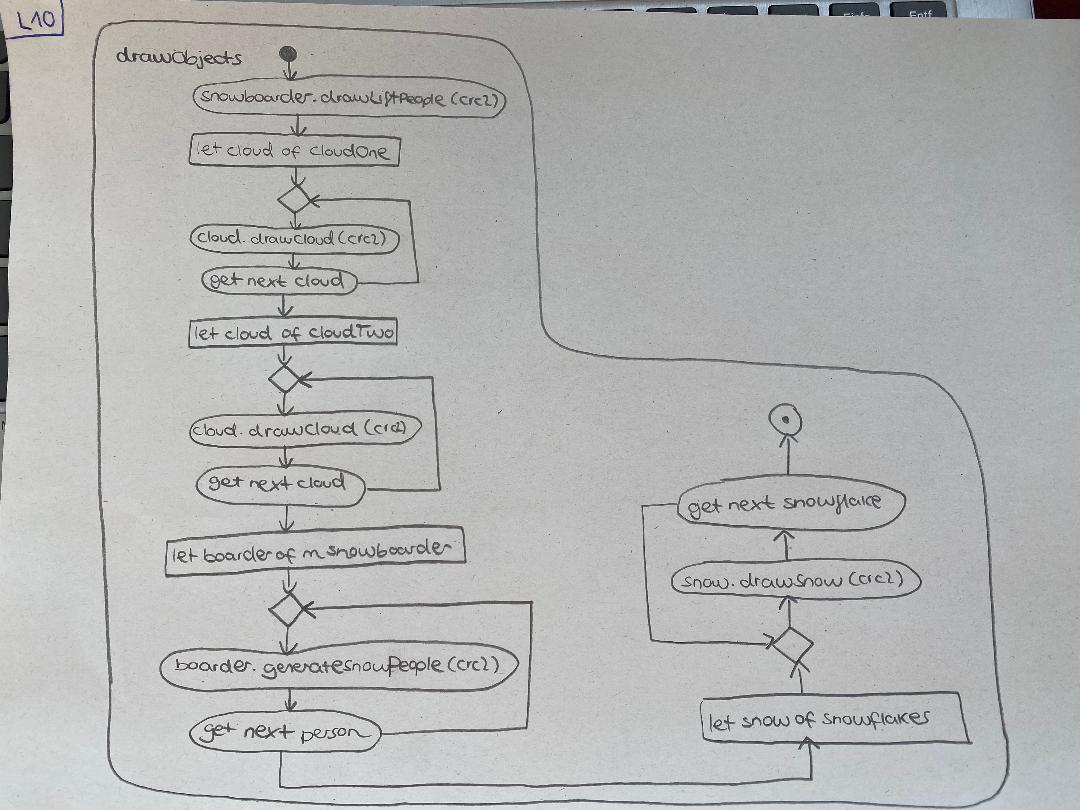 L10
drawObjects
snowboarder.drawLiftPeople(crc2)
let cloud of cloudOne
cloud.drawCloud(crc2)
get next cloud
let cloud of cloudTwo
cloud.drawCloud(crc2)
get next cloud
let boarder of msnowboarder
boarder.generatesnowPeople(crc2)
get next person
let snow of snowflakes
snow.drawSnow(crc2)
get next snowflake
Entf